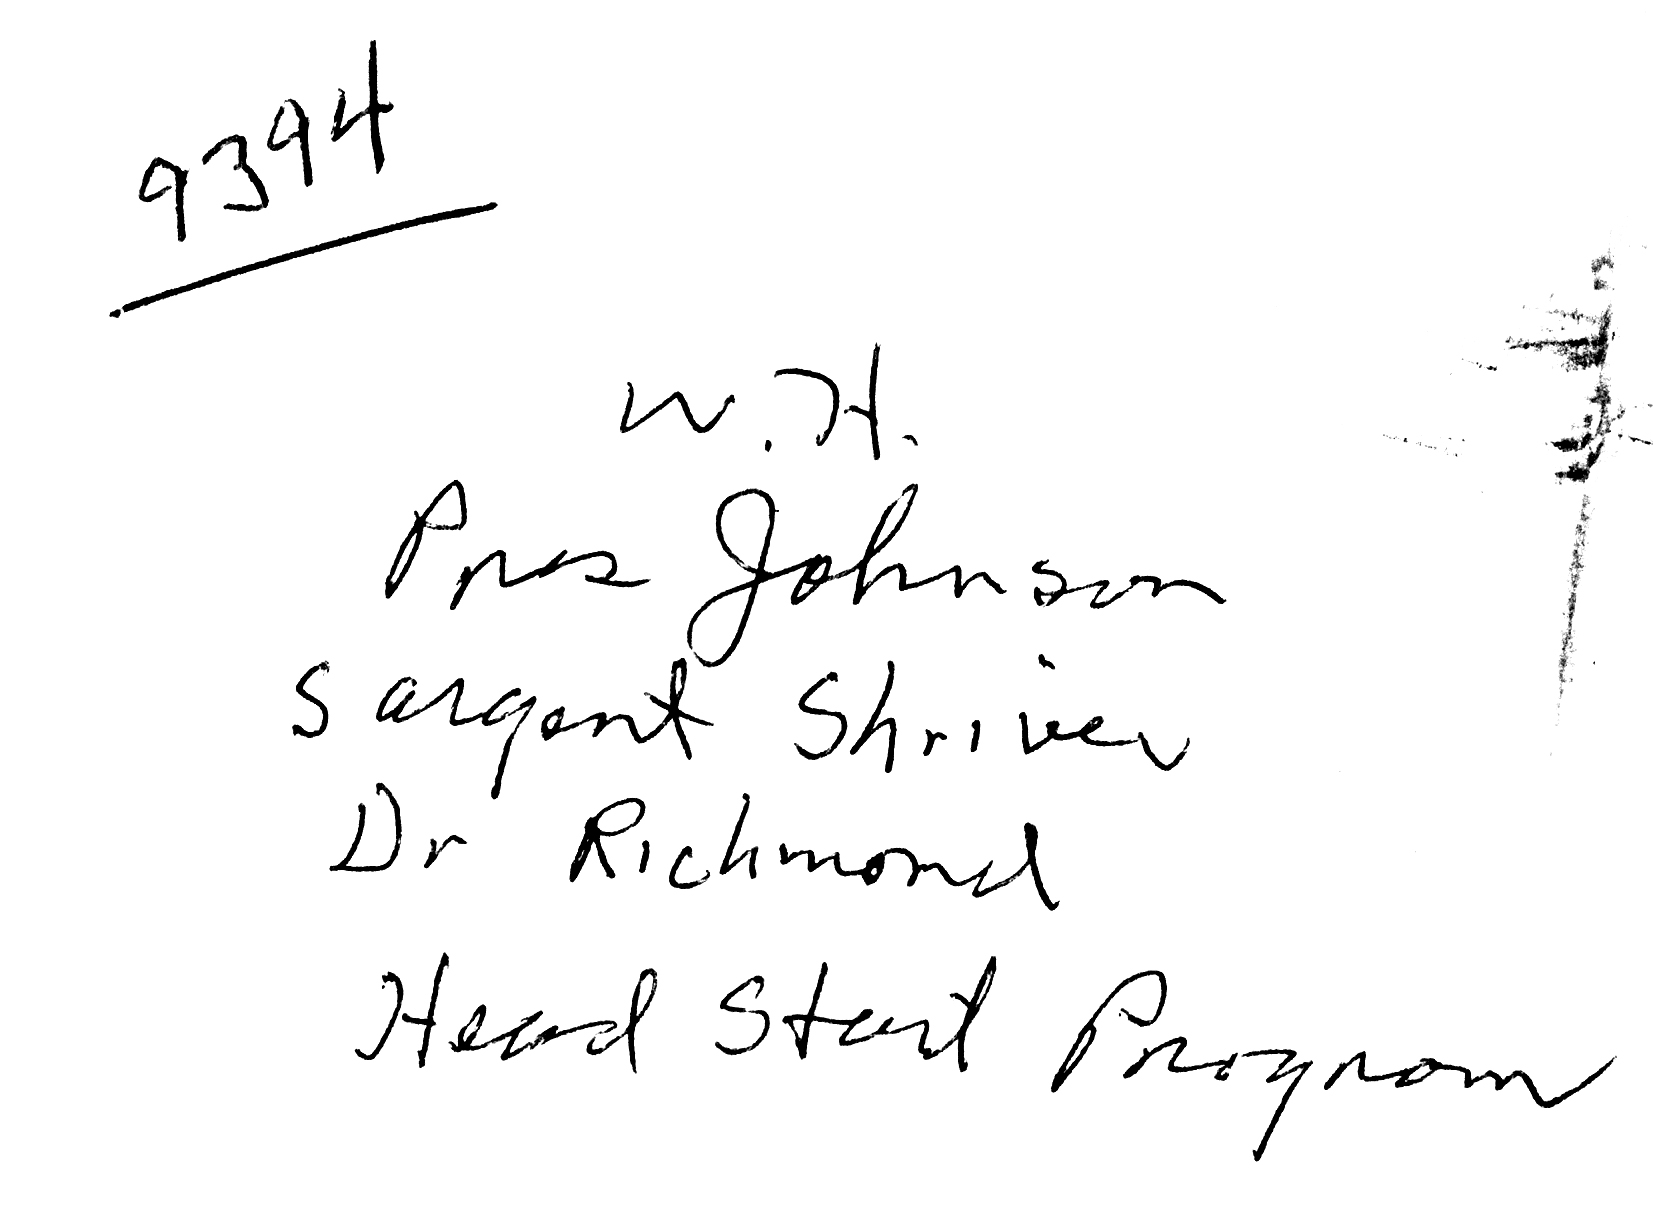 9394
W.H.
Pres Johnson
Sargent Shriver
Dr Richmond
Head Start Program